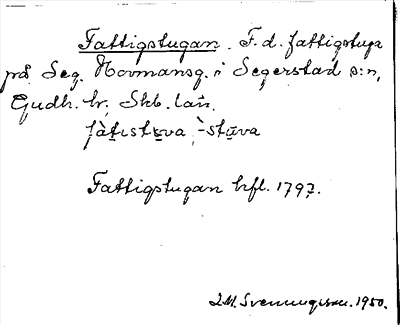 Fattigstugan. F.d. fattigstuga
på Seg. Normansg. i Segerstad s:n,
Gudh. hr, Skb. län.
fàtistųva, `-stūva
Fattigstugan hfl. 1797.
I.M. Svenningsson. 1950.